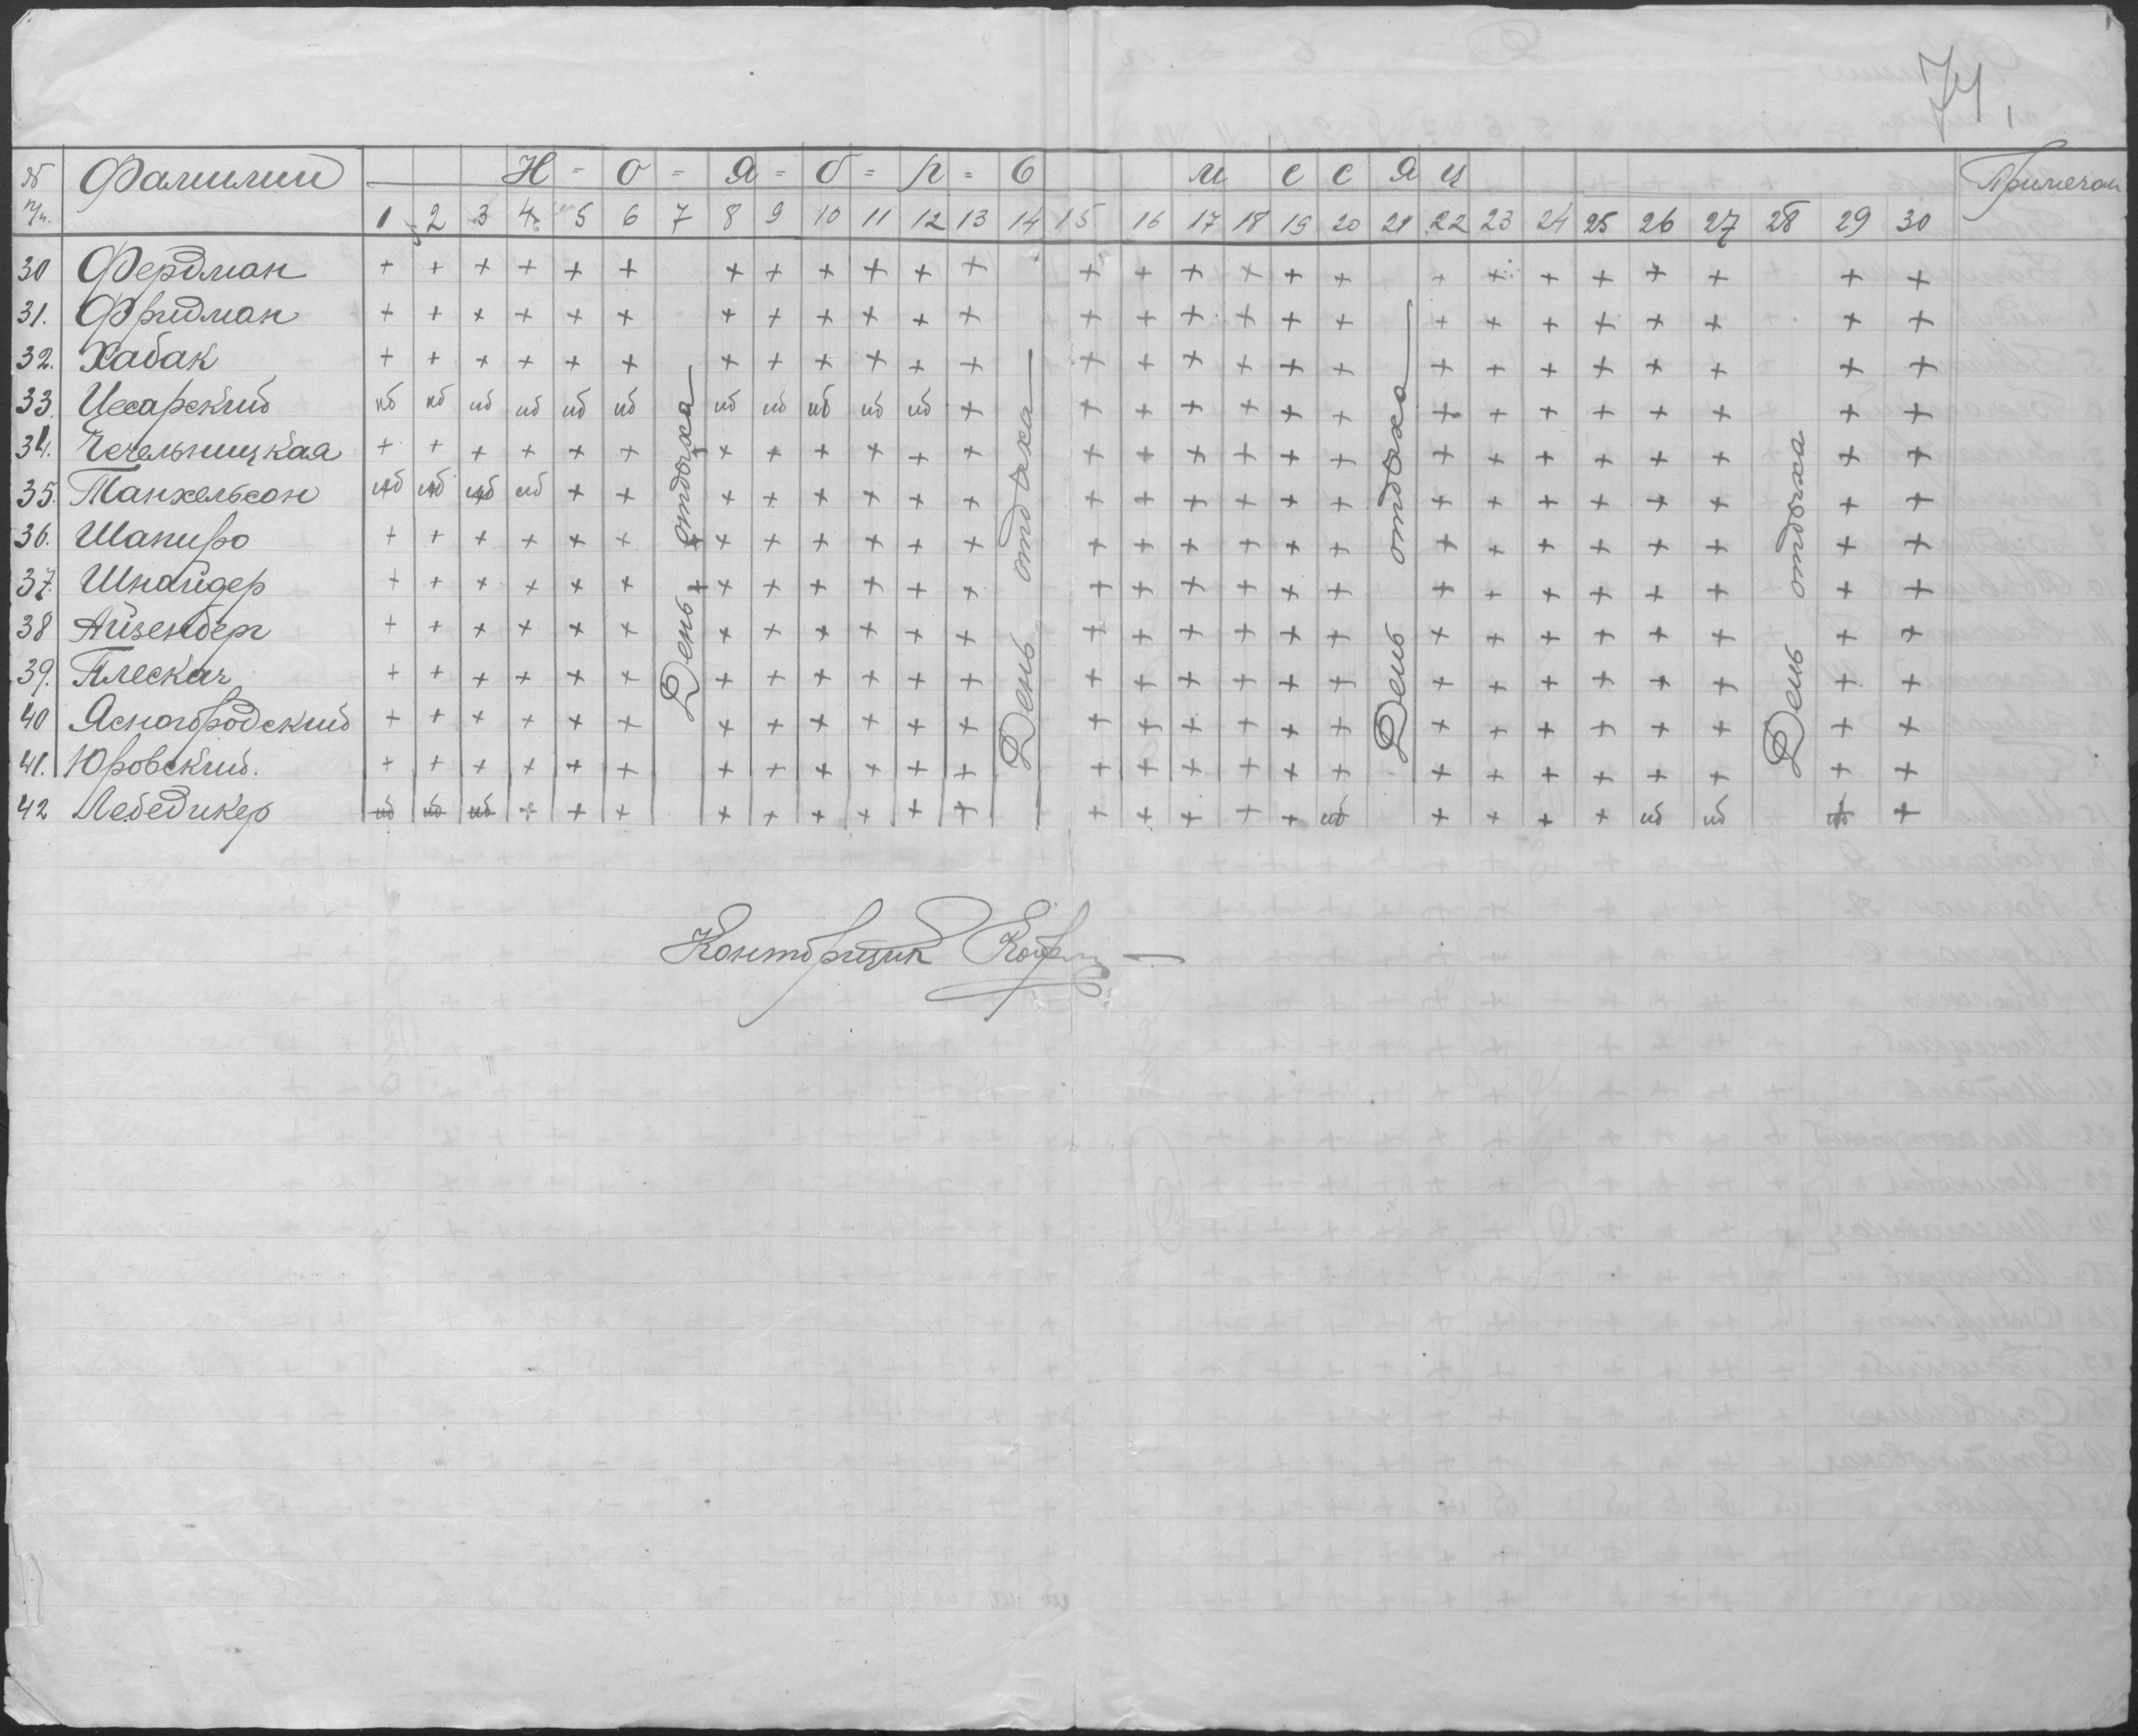 74
№ Фамилии Н - о - я - б - р - ь м е с я ц Примечан
п/п. 1 2 3 4 5 6 7 8 9 10 11 12 13 14 15 16 17 18 19 20 21 22 23 24 25 26 27 28 29 30
30 Фердман + + + + + + + + + + + + + + + + + + + + + + + + + +
31. Фридман + + + + + + + + + + + + + + + + + + + + + + + + + +
32. Хабак + + + + + + + + + + + + + + + + + + + + + + + + + +
33. Цесарский нб нб нб нб нб нб нб нб нб нб нб + + + + + + + + + + + + + + +
34. Чечельницкая + + + + + + + + + + + + + + + + + + + + + + + + + + +
35. Танхельсон нб нб нб нб + + + + + + + + + + + + + + + + + + + + + +
36. Шапиро + + + + + + + + + + + + + + + + + + + + + + + + + + +
37. Шнайдер + + + + + + + + + + + + + + + + + + + + + + + + + + +
38 Айзенберг + + + + + + + + + + + + + + + + + + + + + + + + + +
39. Плескач + + + + + + + + + + + + + + + + + + + + + + + + + +
40 Ясногородский + + + + + + + + + + + + + + + + + + + + + + + + + +
41. Юровский. + + + + + + + + + + + + + + + + + + + + + + + + + +
42 Лебедикер нб нб нб + + + + + + + + + + + + + + нб + + + + нб нб нб +
День отдыха
День отдыха
День отдыха
День отдыха
Конторщик